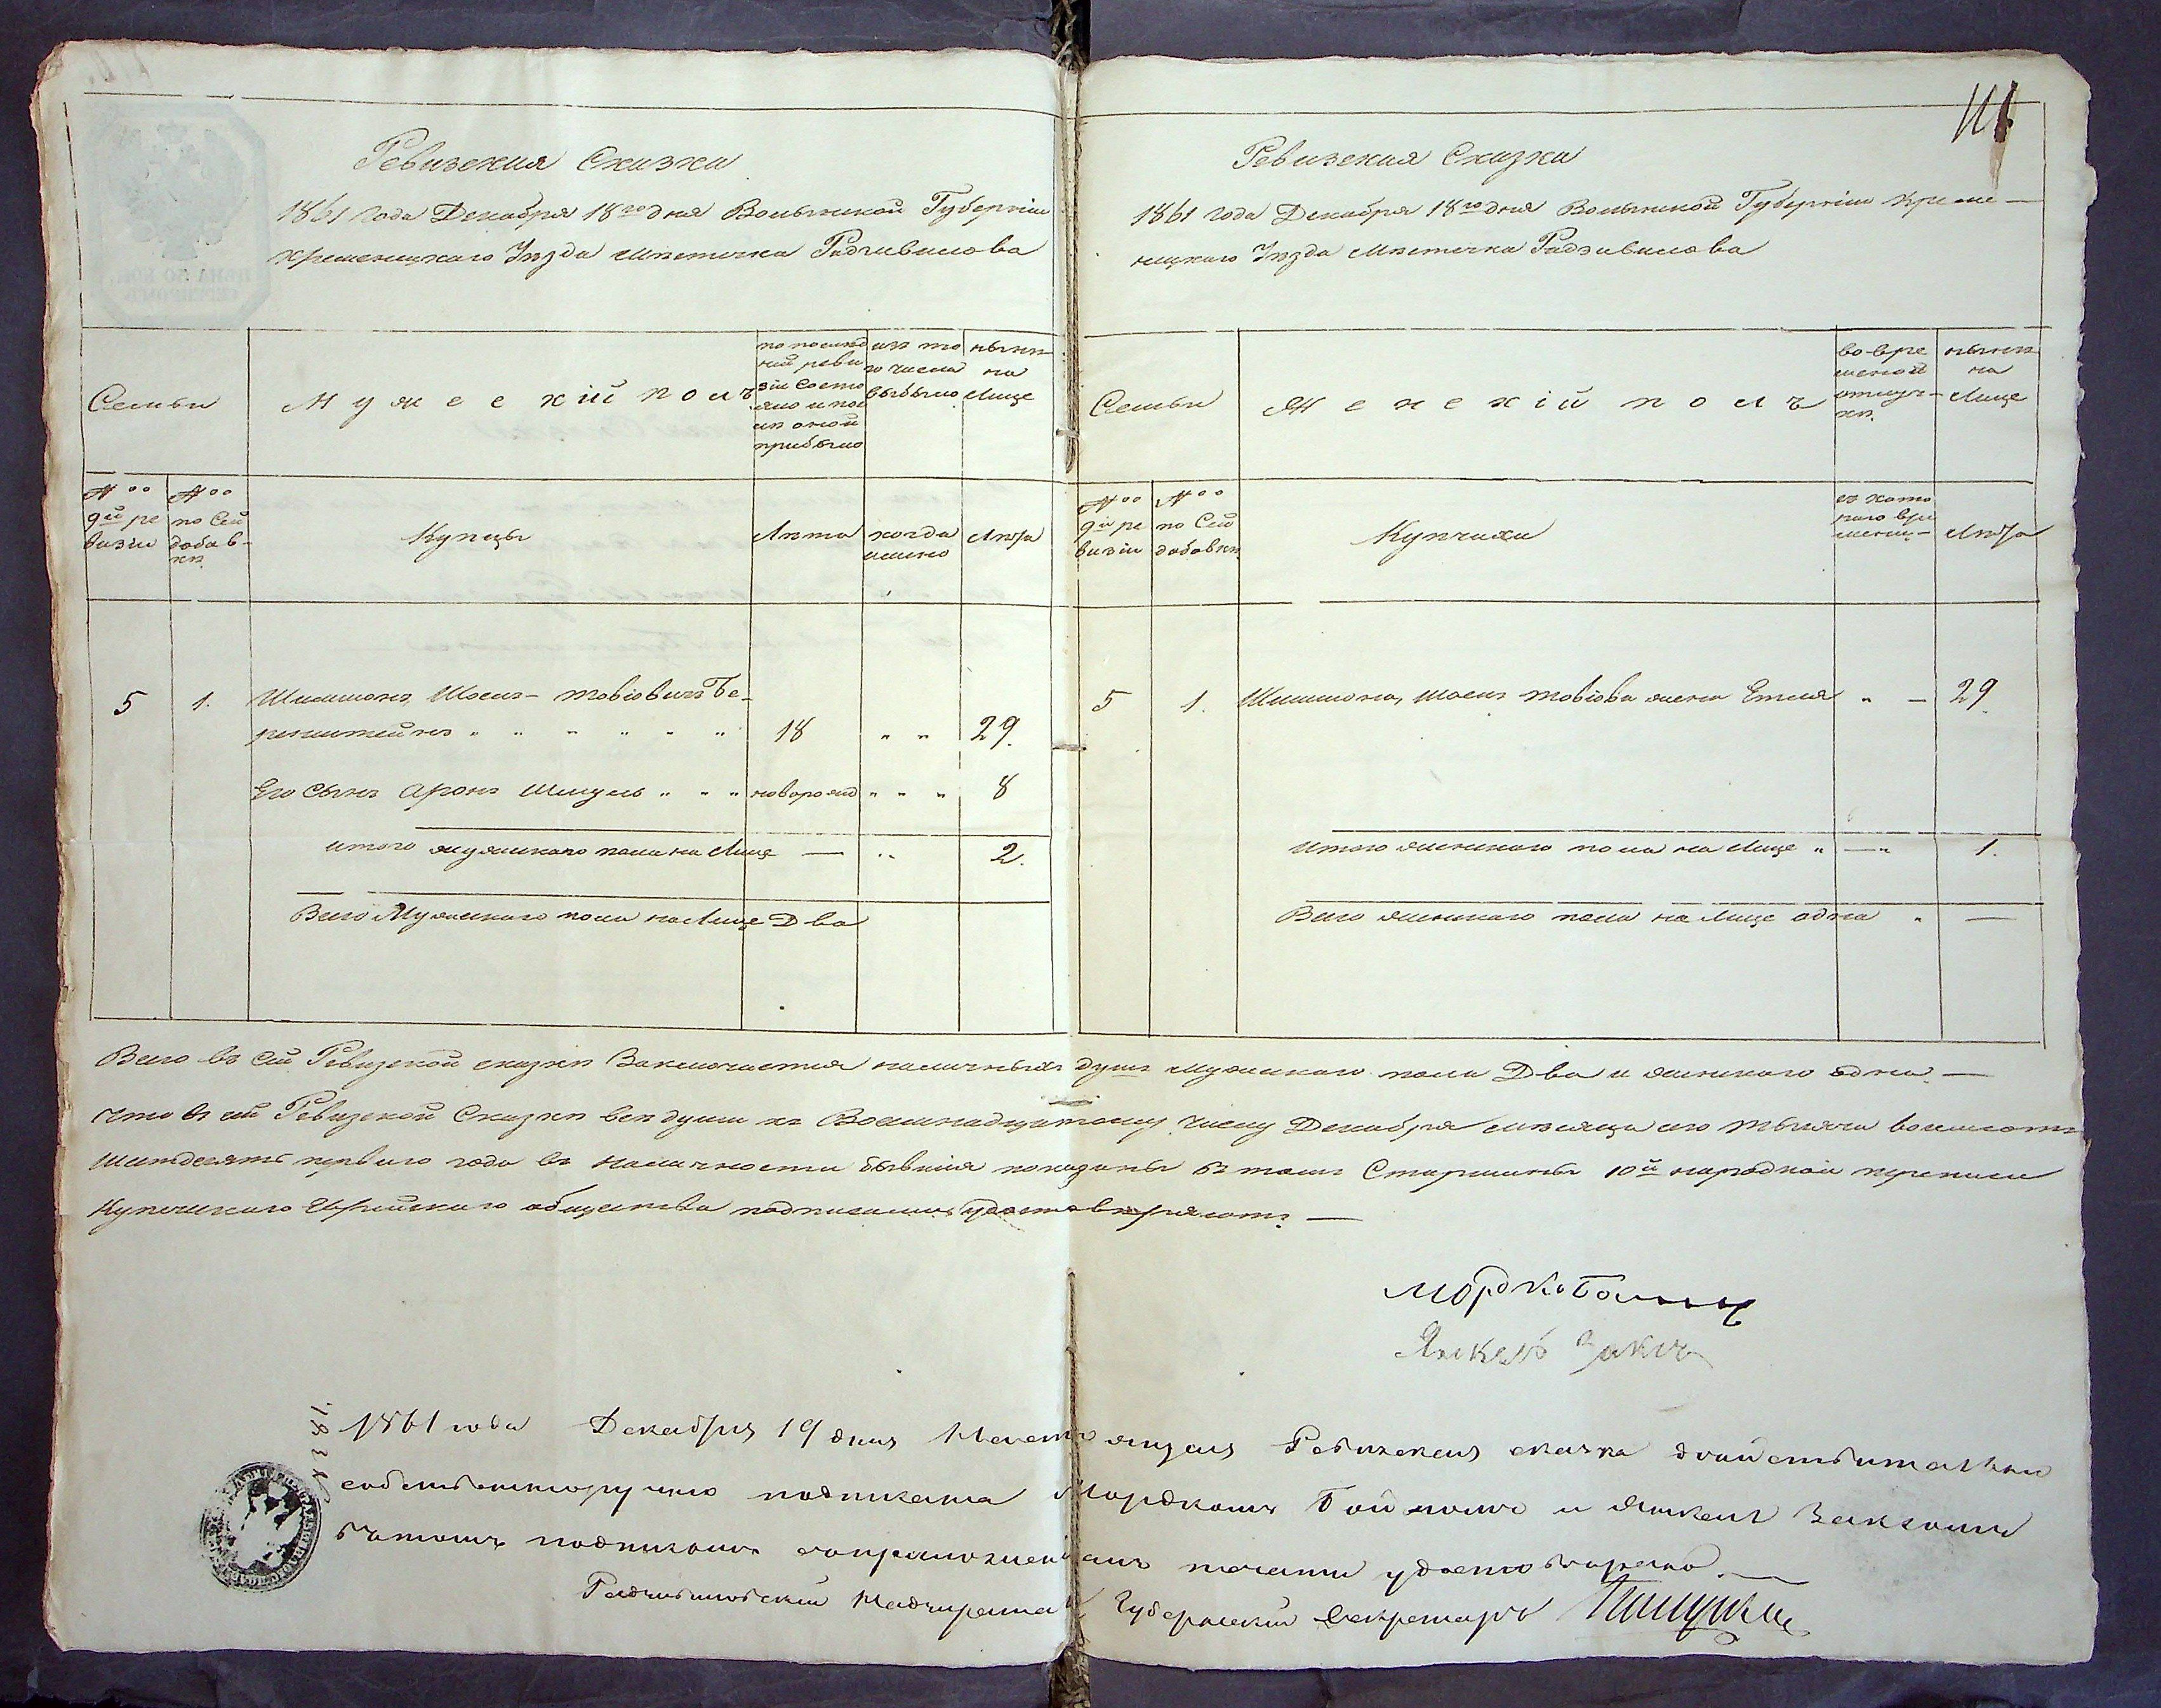 111
Ревизская Сказка
1861 года Декабря 18го дня Волынской Губернии
Кременецкаго Уѣзда Мѣстечка Радзивилова
Семьи
Мужескій полъ
по послѣд
ней реви
зіи состо
яло и пос
лѣ оной
прибыло
изъ то
го числа
выбыло
нынѣ
на
Лице
№оо
9й ре
визіи
№оо
по Сей
добав-
кѣ
Купцы
Лѣта
когда
имянно
Лѣта
5 1. Шимшонъ, Шоель-Товіовичъ Бе-
ренштейнъ " " " " " " 18 " " 29.
Его Сынъ Аронъ Шмуль " " " новорожд " " " 8
итого мужескаго пола на Лице — " 2.
Всего Мужескаго пола на Лице Два
Ревизская Сказка
1861 года Декабря 18го дня Волынской Губерніи Креме-
нецкаго Уѣзда Мѣстечка Радзивилова
Семьи
Женскій полъ
во вре
менной
отлуч-
кѣ.
нынѣ
на
Лице
№оо
9й ре
визіи
№оо
по Сей
добавкѣ
Купчихи
съ кото
раго вре
мени-
Лѣта
5 1. Шимшона, Шоель Товіова жена Етля " — 29.
Итого женскаго пола на Лице " — " 1.
Всего женскаго пола на Лице одна " —
Всего въ сей Ревизской сказкѣ Заключается наличныхъ душъ мужескаго пола Два и женскаго одна. —
Что въ сей Ревизской Сказкѣ всѣ души къ Восемнадцатому числу Декабря мѣсяца сего тысяча восемсотъ
Шестдесятъ перваго года въ наличности бывшія показаны въ томъ Старшины 10й народной переписи
Купеческаго Еврейскаго общества подписомъ удостовѣряютъ. —
Мордко
Янкель Заксъ
1861 года Декабря 19 дня Настоящая Ревизская сказка дѣйствительно
собственноручно подписана Мордкомъ и Янкелемъ Заксомъ
въ томъ подписомъ съ приложеніемъ печати удостовѣрено. —
Радзивиловскій Надзиратель Губернскій Секретарь